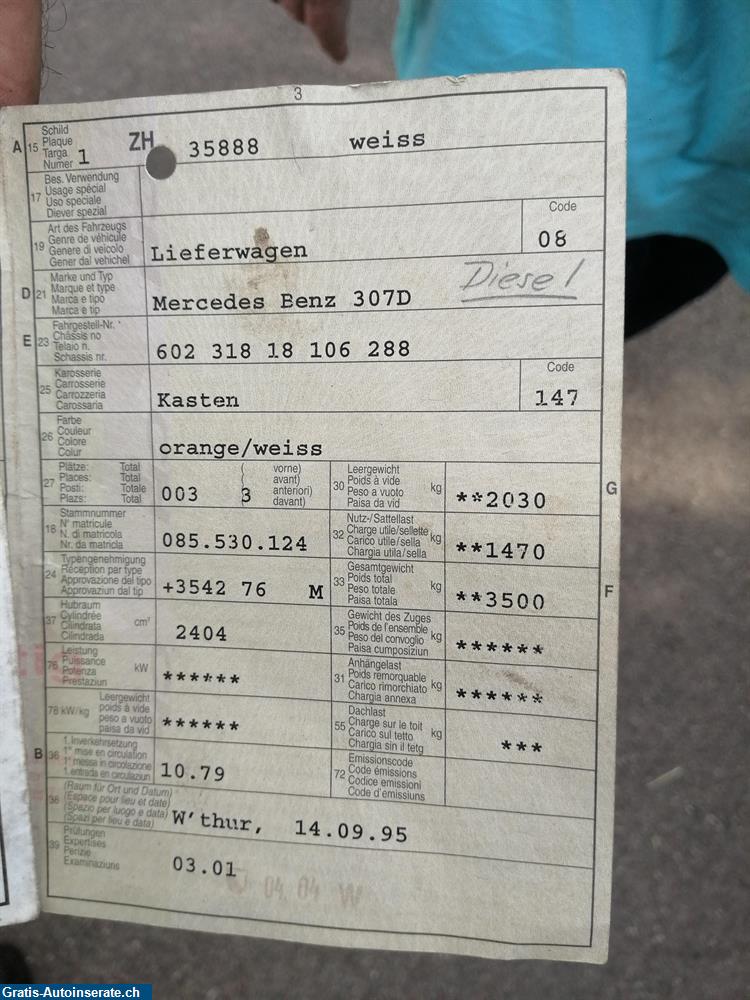 3
A 15 Schild
Plaque
Targa
Numer 1 ZH 35888 weiss
17 Bes. Verwendung
Usage spécial
Uso speciale
Diever spezial
19 Art des Fahrzeugs
Genre de véhicule
Genere di veicolo
Gener dal vehichel
Lieferwagen
Code
08
D 21 Marke und Typ
Marque et type
Marca e tipo
Marca e tip
Mercedes Benz 307D
Diesel
E 23 Fahrgestell-Nr.
Châssis no
Telaio n.
Schassis nr.
602 318 18 106 288
25 Karosserie
Carrosserie
Carrozzeria
Carossaria
Kasten
Code
147
26 Farbe
Couleur
Colore
Colur
orange/weiss
27 Plätze: Total ( vorne)
Places: Total ( avant)
Posti: Totale anteriori)
Plazs: Total davant)
003 3
G
30 Leergewicht
Poids à vide
Peso a vuoto
Paisa da vid
kg **2030
18 Stammnummer
N° matricule
N. di matricola
Nr. da matricla
085.530.124
32 Nutz-/Sattellast
Charge utile/sellette
Carico utile/sella
Chargia utila/sella
kg **1470
24 Typengenehmigung
Réception par type
Approvazione del tipo
Approvaziun dal tip
+3542 76 M
F
33 Gesamtgewicht
Poids total
Peso totale
Paisa totala
kg **3500
37 Hubraum
Cylindrée
Cilindrata
Cilindrada
cm³ 2404
35 Gewicht des Zuges
Poids de l'ensemble
Peso del convoglio
Paisa cumposiziun
kg ******
76 Leistung
Puissance
Potenza
Prestaziun
kW ******
31 Anhängelast
Poids remorquable
Carico rimorchiato
Chargia annexa
kg ******
78 kW/kg Leergewicht
poids à vide
peso a vuoto
paisa da vid
******
55 Dachlast
Charge sur le toit
Carico sul tetto
Chargia sin il tetg
kg ***
B 36 1. Inverkehrsetzung
1re mise en circulation
1a messa in circolazione
1. entrada en circulaziun
10.79
72 Emissionscode
Code émissions
Codice emissioni
Code d'emissiuns
38 (Raum für Ort und Datum)
(Espace pour lieu et date)
(Spazio per luogo e data)
(Spazi per lieu e data)
W'thur, 14.09.95
39 Prüfungen
Expertises
Perizie
Examinaziuns
03.01
04.04 W
Gratis-Autoinserate.ch